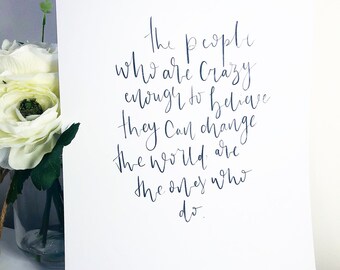 the people
who are crazy
enough to believe
they can change
the world are
the ones who
do.